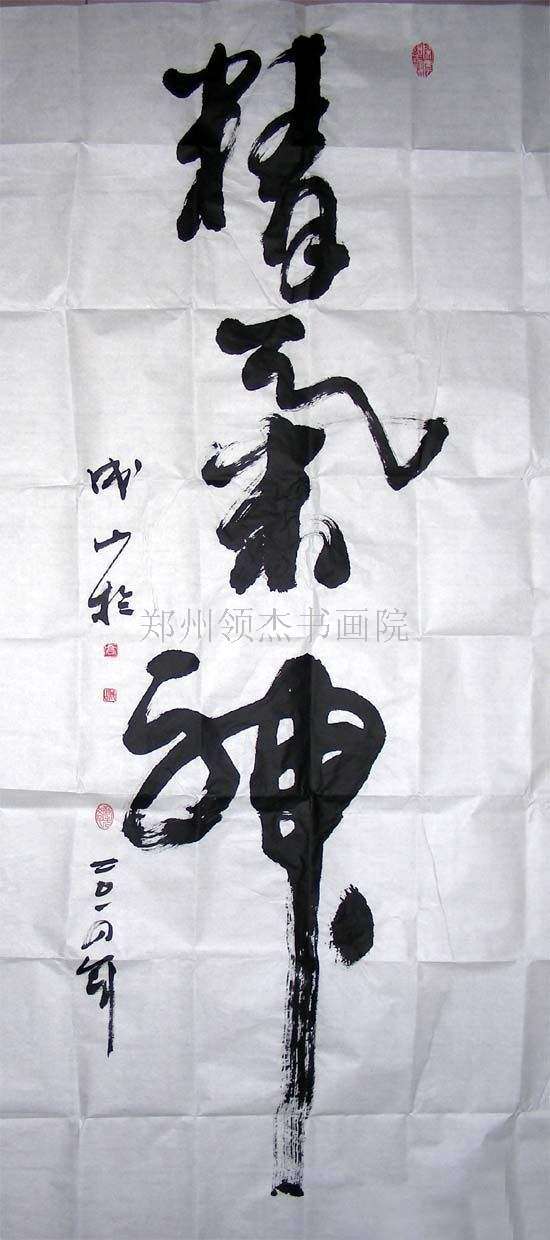 精氣神
成山於
二〇一四年
郑州领杰书画院